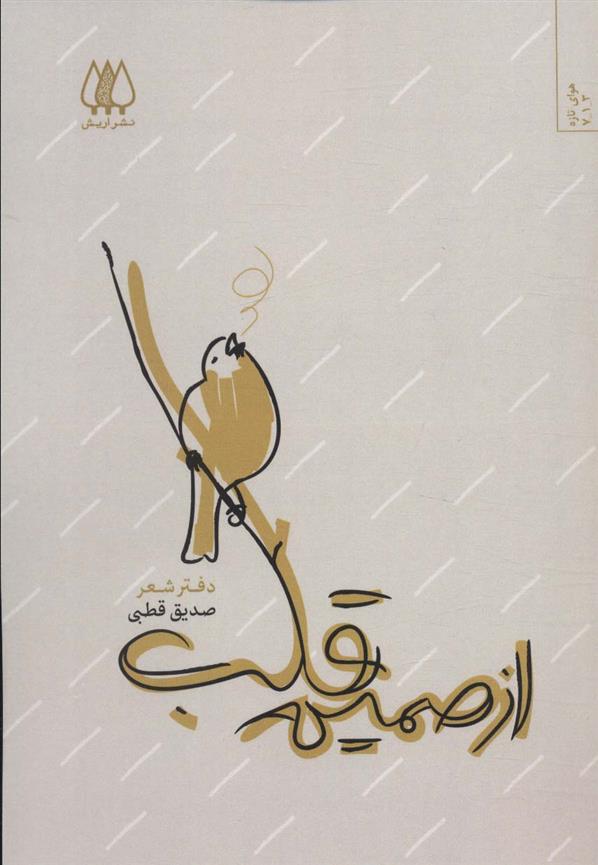 نشر اریش
هوای تازه
۳_۱_۷
دفتر شعر
صدیق قطبی
از صمیم قلب